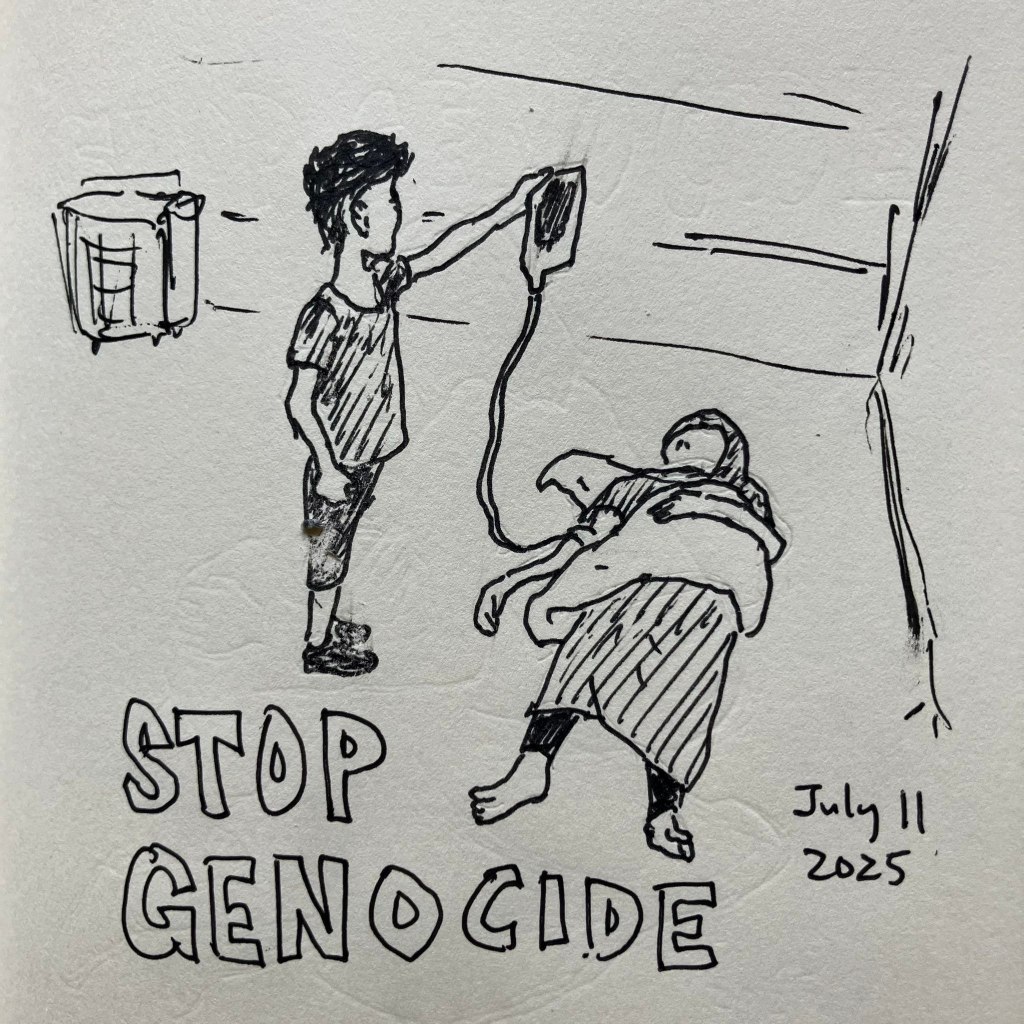 STOP
GENOCIDE
July 11
2025